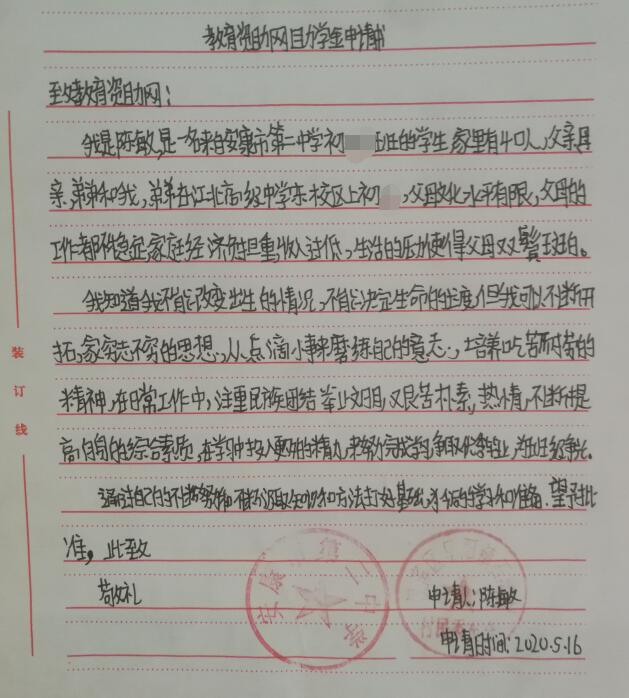 教育资助网自力学金申请书
致教育资助网:
我是陈敏,是一名来自安康市第一中学初 班的学生家里有4口人,父亲,母
亲,弟弟和我,弟弟在江北高级中学东校区上初 ,父母文化水平有限,父母的
工作都不稳定,家庭经济负担重,收入过低,生活的压力使得父母双鬓斑白。
我知道我不能改变出生的情况,不能决定生命的长度,但我可以不断开
拓,家穷志不穷的思想,从点滴小事来磨练自己的意志,培养吃苦耐劳的
精神,在日常工作中,注重民族团结 举止文明,又艰苦朴素,热情,不断提
高自身的综合素质,在学习中投入更好的精力,来努力完成学习,争取优毕业,为班级争光。
通过自己的不断努力和 汲取知识和方法打好基础, 的学习和准备,望予批
准,此致
敬礼
申请人:陈敏
申请日时间:2020.5.16
装
订
线
安康 第 中学